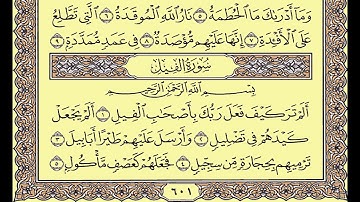 وَمَآ أَدْرَىٰكَ مَا ٱلْحُطَمَةُ ٥ نَارُ ٱللَّهِ ٱلْمُوقَدَةُ ٦ ٱلَّتِى تَطَّلِعُ
عَلَى ٱلْأَفْـِٔدَةِ ٧ إِنَّهَا عَلَيْهِم مُّؤْصَدَةٌ ٨ فِى عَمَدٍ مُّمَدَّدَةٍۭ ٩
سُورَةُ الْفِيلِ
بِسْمِ ٱللَّهِ ٱلرَّحْمَٰنِ ٱلرَّحِيمِ
أَلَمْ تَرَ كَيْفَ فَعَلَ رَبُّكَ بِأَصْحَٰبِ ٱلْفِيلِ ١ أَلَمْ يَجْعَلْ
كَيْدَهُمْ فِى تَضْلِيلٍ ٢ وَأَرْسَلَ عَلَيْهِمْ طَيْرًا أَبَابِيلَ ٣
تَرْمِيهِم بِحِجَارَةٍ مِّن سِجِّيلٍ ٤ فَجَعَلَهُمْ كَعَصْفٍ مَّأْكُولٍۭ ٥
٦٠١